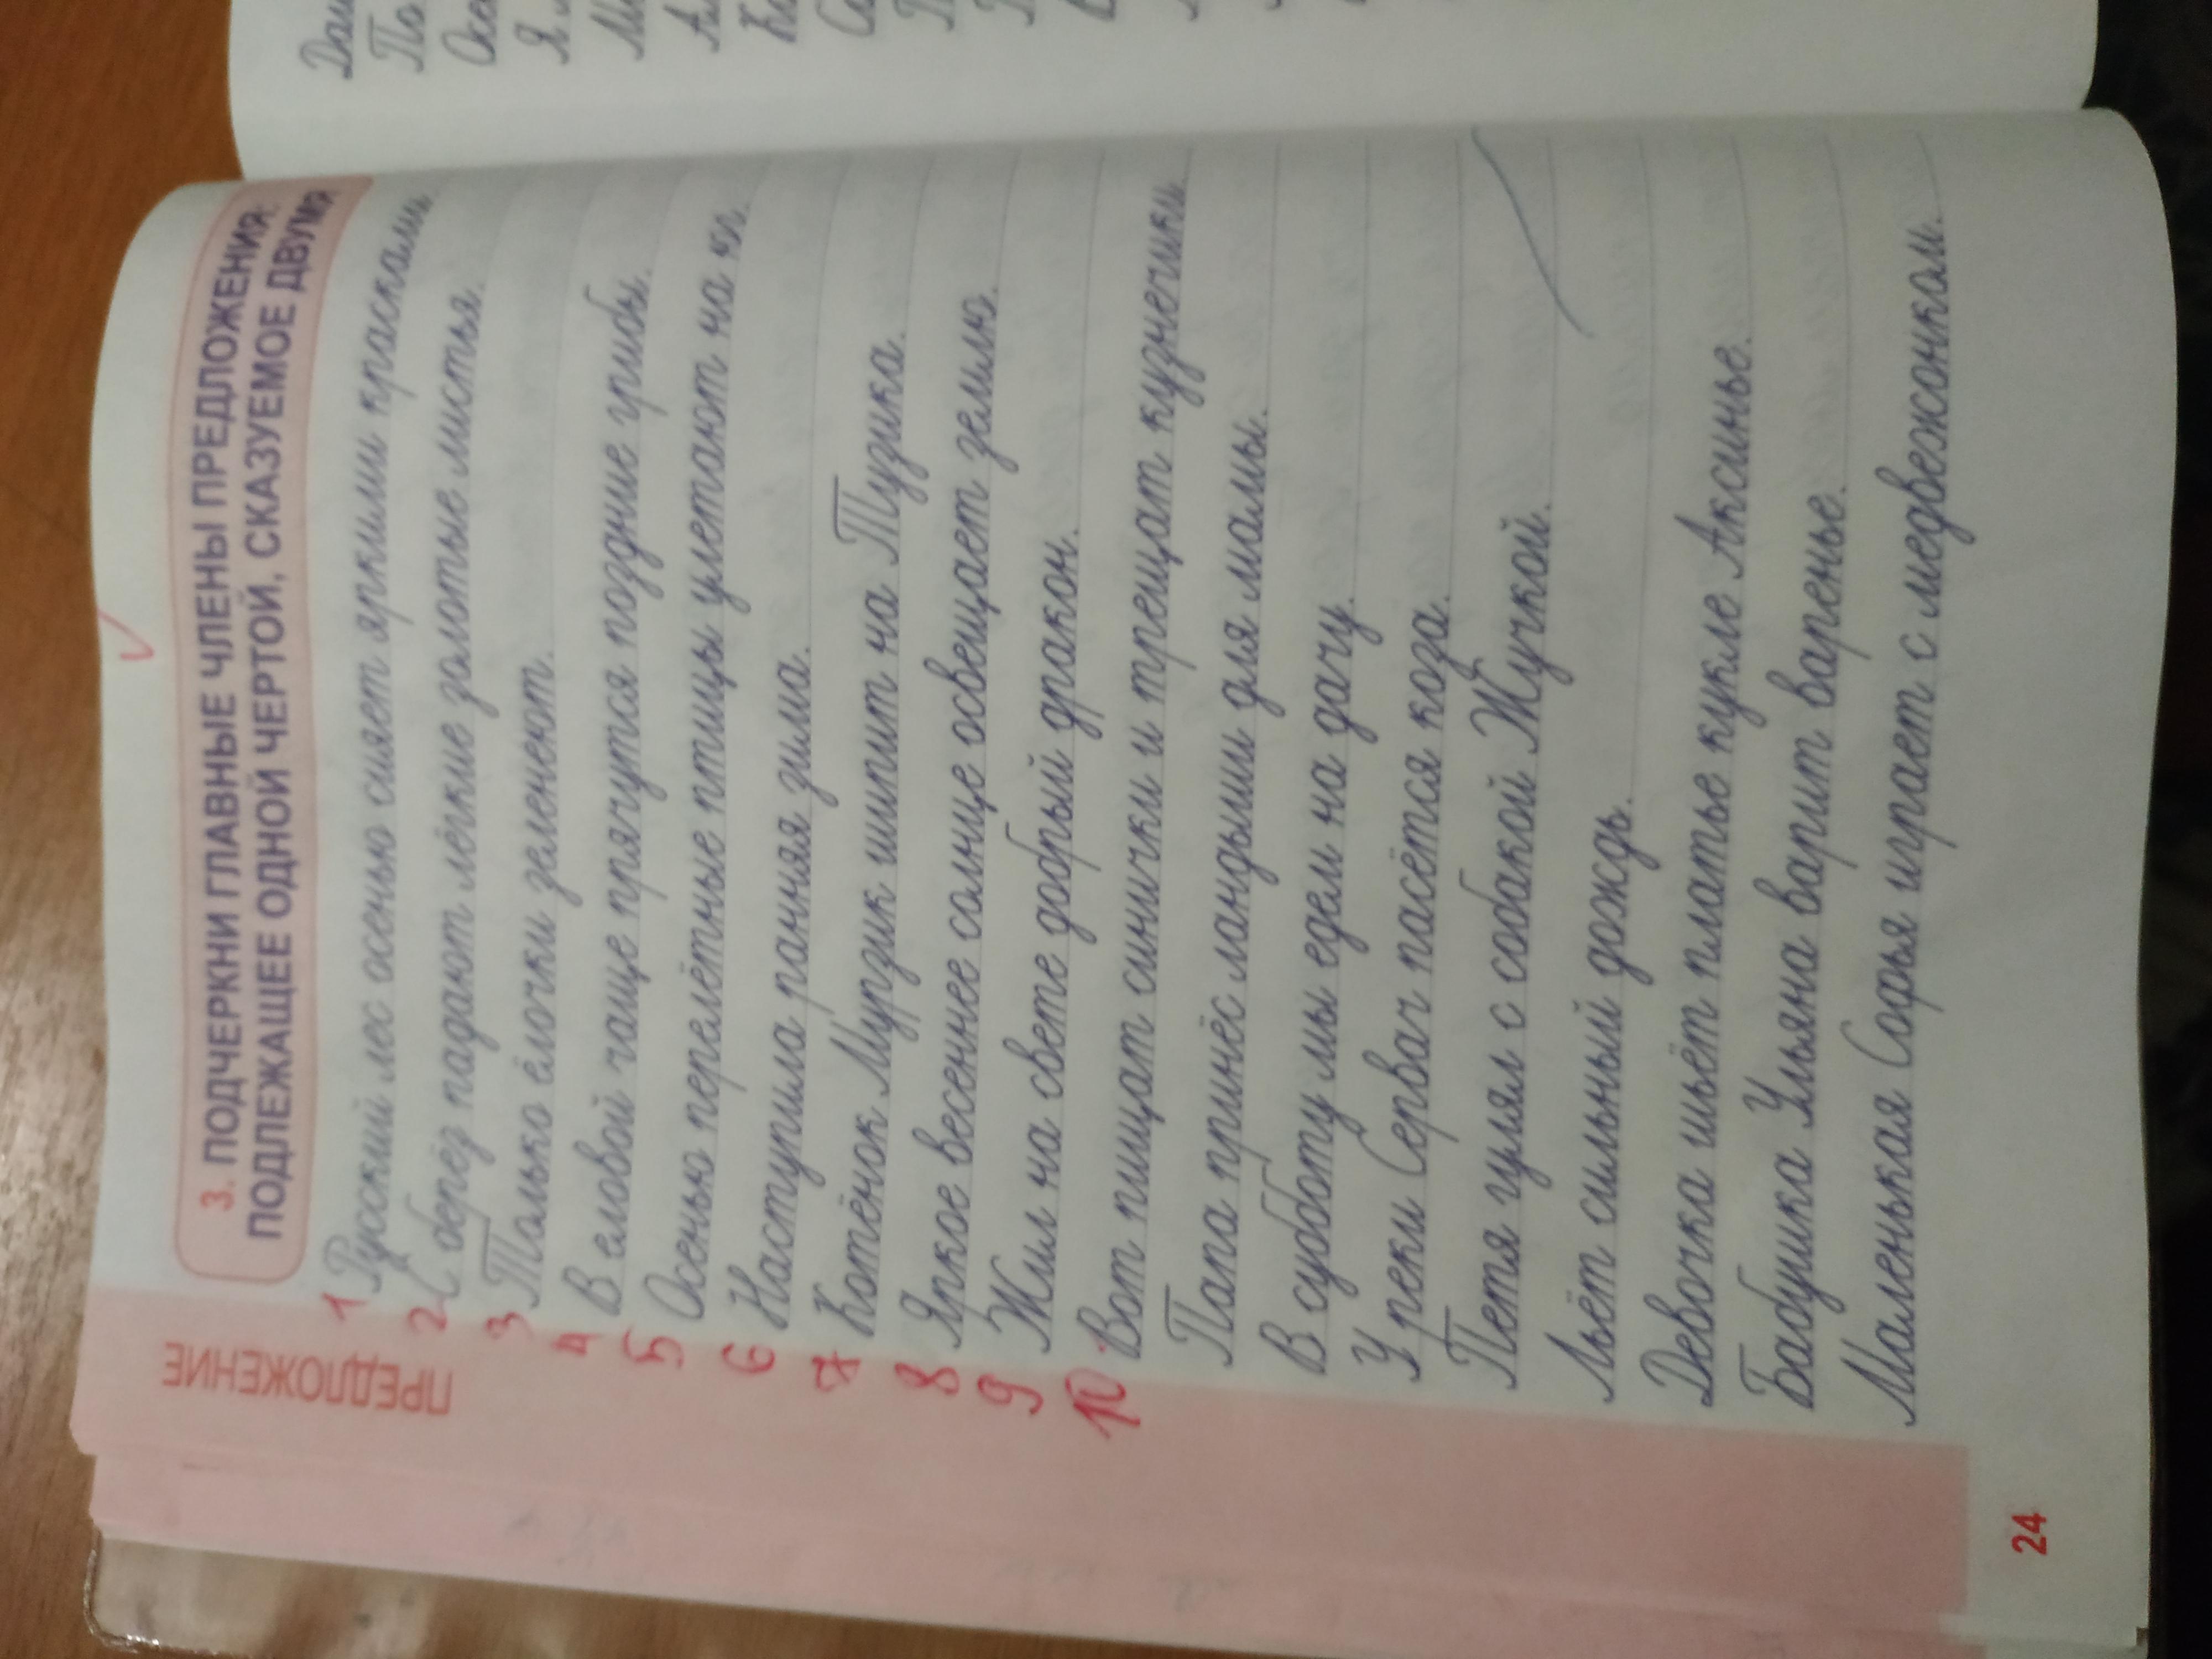 ПРЕДЛОЖЕНИЕ
3. ПОДЧЕРКНИ ГЛАВНЫЕ ЧЛЕНЫ ПРЕДЛОЖЕНИЯ:
ПОДЛЕЖАЩЕЕ ОДНОЙ ЧЕРТОЙ, СКАЗУЕМОЕ ДВУМЯ
1 Русский лес осенью сияет яркими красками.
2 С берёз падают лёгкие золотые листья.
3 Только ёлочки зеленеют.
4 В еловой чаще прячутся поздние грибы.
5 Осенью перелётные птицы улетают на юг.
6 Наступила ранняя зима.
7 Котёнок Мурзик шипит на Тузика.
8 Яркое весеннее солнце освещает землю.
9 Жил на свете добрый дракон.
10 Вот пищат синички и трещат кузнечики.
Папа принёс ландыши для мамы.
В субботу мы едем на дачу.
У реки Сервач пасётся коза.
Петя гулял с собакой Жучкой.
Льёт сильный дождь.
Девочка шьёт платье кукле Аксинье.
Бабушка Ульяна варит варенье.
Маленькая Софья играет с медвежонком.
24